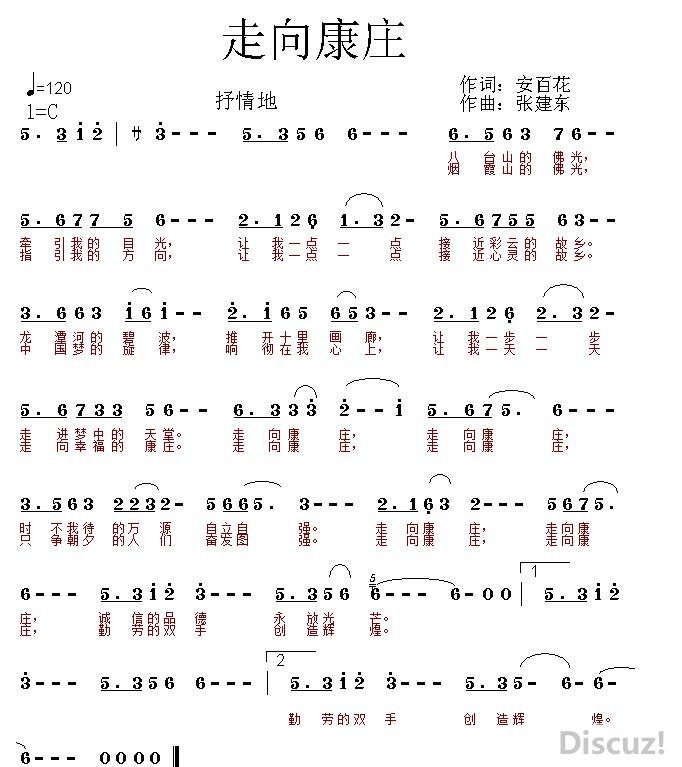 走向康庄
♩=120
作词：安百花
1=C
抒情地
作曲：张建东
5. 3 i 2 | サ 3 - - - 5. 3 5 6 6 - - - 6. 5 6 3 7 6 - -
八 台山的 佛光，
烟 霞山的 佛光，
5. 6 7 7 5 6 - - - 2. 1 2 6 1. 3 2 - 5. 6 7 5 5 6 3 - -
牵 引我的 目 光， 让 我一点 一 点 接 近彩云的 故乡。
指 引我的 方 向， 让 我一点 一 点 接 近心灵的 故乡。
3. 6 6 3 i 6 i - - 2. i 6 5 6 5 3 - - 2. 1 2 6 2. 3 2 -
龙 潭河的 碧 波， 推 开十里 画 廊， 让 我一步 一 步
中 国梦的 旋 律， 响 彻在我 心 上， 让 我一天 一 天
5. 6 7 3 3 5 6 - - 6. 3 3 3 2 - - i 5. 6 7 5. 6 - - -
走 进梦中的 天堂。 走 向康 庄， 走 向康 庄，
走 向幸福的 康庄。 走 向康 庄， 走 向康 庄，
3. 5 6 3 2 2 3 2 - 5 6 6 5. 3 - - - 2. 1 6 3 2 - - - 5 6 7 5.
时 不我待 的万 源 自立自 强。 走 向康 庄， 走向康
只 争朝夕 的人 们 奋发图 强。 走 向康 庄， 走向康
6 - - - 5. 3 i 2 3 - - - 5. 3 5 6 5 6 - - - 6 - 0 0 | 1 5. 3 i 2
庄， 诚 信的品 德 永 放光 芒。
庄， 勤 劳的双 手 创 造辉 煌。
3 - - - 5. 3 5 6 6 - - - | 2 5. 3 i 2 3 - - - 5. 3 5 - 6 - 6 - - -
勤 劳的双 手 创 造辉 煌。
6 - - - 0 0 0 0
Discuz!